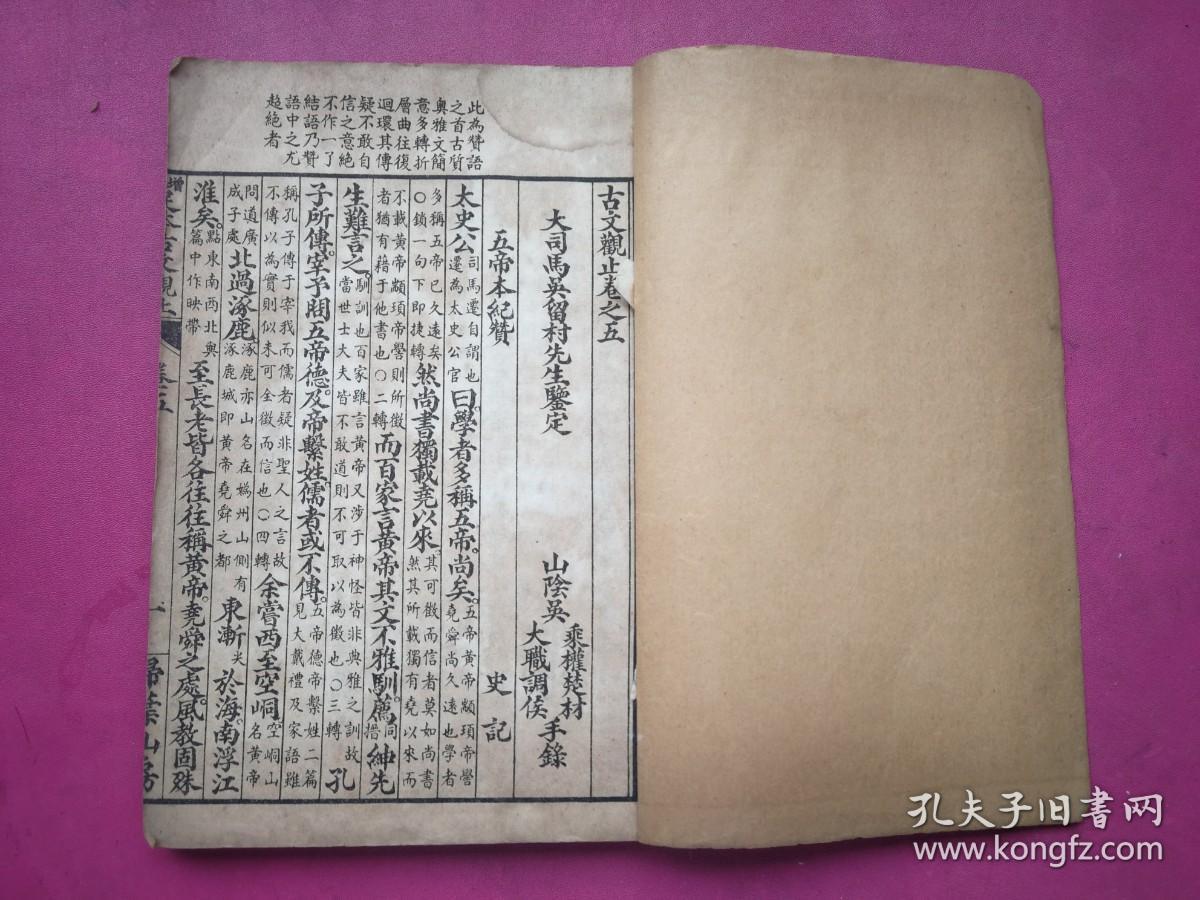 古文觀止卷之五
大司馬吳留村先生鑒定
山陰吳
乘權楚材
大職調侯
手錄
五帝本紀贊
史記
太史公司馬遷自謂也遷為太史公官曰學者多稱五帝尚矣五帝黃帝顓頊帝嚳堯舜尚久遠也學者
多稱五帝已久遠矣○鎖一句下即捷轉然尚書獨載堯以來其可徵而信者莫如尚書然其所載獨有堯以來而
不載黃帝顓頊帝嚳則所徵者猶有藉于他書也○二轉而百家言黃帝其文不雅馴薦同搢紳先
生難言之馴訓也百家雖言黃帝又涉于神怪皆非典雅之訓故當世士大夫皆不敢道則不可取以為徵也○三轉孔
子所傳宰予問五帝德及帝繫姓儒者或不傳五帝德帝繫姓二篇見大戴禮及家語雖
稱孔子傳于宰我而儒者疑非聖人之言故不傳以為實則似未可全徵而信也○四轉余嘗西至空峒空峒山名黃帝
問道廣成子處北過涿鹿涿鹿亦山名在媯州山側有涿鹿城即黃帝堯舜之都東漸尖於海南浮江
淮矣點東南西北與篇中作映帶至長老皆各往往稱黃帝堯舜之處風教固殊
此為贊語
之首古質
奧雅文簡
意多轉折
層曲往復
迴環其傳
疑不敢自
信之意絕
不作一了
結語乃贊
語中之尤
超絕者
卷五
一
掃葉山房
孔夫子旧书网
www.kongfz.com